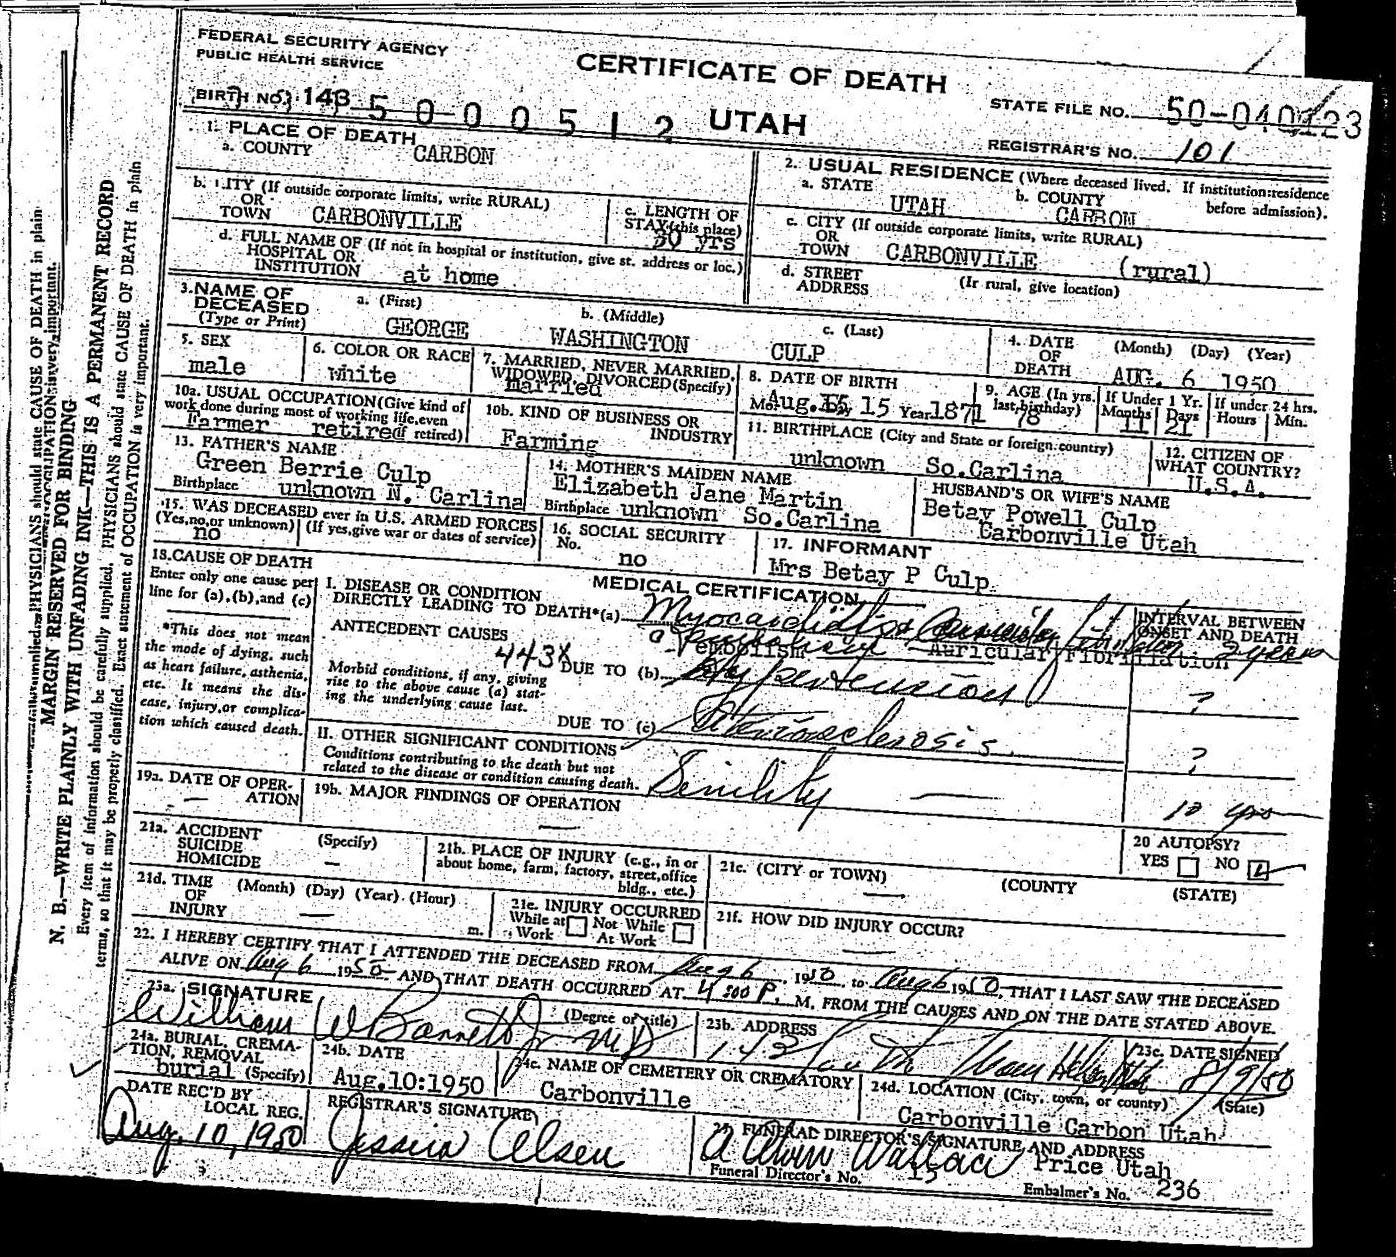 FEDERAL SECURITY AGENCY
PUBLIC HEALTH SERVICE
CERTIFICATE OF DEATH
STATE FILE NO. 50-040123
BIRTH NO. 143 5 0 0 0 0 5 1 2
UTAH
REGISTRAR'S NO. 101
1. PLACE OF DEATH
a. COUNTY CARBON
2. USUAL RESIDENCE (Where deceased lived. If institution: residence before admission).
a. STATE UTAH b. COUNTY CARBON
b. CITY (If outside corporate limits, write RURAL)
OR
TOWN CARBONVILLE
c. LENGTH OF
STAY (this place)
50 yrs
c. CITY (If outside corporate limits, write RURAL)
OR
TOWN CARBONVILLE (rural)
d. FULL NAME OF (If not in hospital or institution, give st. address or loc.)
HOSPITAL OR
INSTITUTION at home
d. STREET (If rural, give location)
ADDRESS
3. NAME OF
DECEASED
(Type or Print)
a. (First) GEORGE
b. (Middle) WASHINGTON
c. (Last) CULP
4. DATE OF DEATH (Month) (Day) (Year)
AUG. 6 1950
5. SEX
male
6. COLOR OR RACE
white
7. MARRIED, NEVER MARRIED,
WIDOWED, DIVORCED (Specify)
married
8. DATE OF BIRTH
Mo. Aug. Day 15 Year 1871
9. AGE (In yrs. last birthday) 78
If Under 1 Yr. Months 11 Days 21
If under 24 hrs. Hours Min.
10a. USUAL OCCUPATION (Give kind of
work done during most of working life, even
if retired)
Farmer retired
10b. KIND OF BUSINESS OR
INDUSTRY
Farming
11. BIRTHPLACE (City and State or foreign country)
unknown So.Carlina
12. CITIZEN OF
WHAT COUNTRY?
U.S.A.
13. FATHER'S NAME
Green Berrie Culp
Birthplace unknown N. Carlina
14. MOTHER'S MAIDEN NAME
Elizabeth Jane Martin
Birthplace unknown So.Carlina
HUSBAND'S OR WIFE'S NAME
Betay Powell Culp
Carbonville Utah
15. WAS DECEASED ever in U.S. ARMED FORCES
(Yes, no, or unknown) (If yes, give war or dates of service)
no
16. SOCIAL SECURITY
No. no
17. INFORMANT
Mrs Betay P Culp
18. CAUSE OF DEATH
Enter only one cause per
line for (a), (b), and (c)
*This does not mean
the mode of dying, such
as heart failure, asthenia,
etc. It means the dis-
ease, injury, or complica-
tion which caused death.
MEDICAL CERTIFICATION
I. DISEASE OR CONDITION
DIRECTLY LEADING TO DEATH*(a)
INTERVAL BETWEEN
ONSET AND DEATH
embolism Auricular Fibrillation 2 years
ANTECEDENT CAUSES
443X
Morbid conditions, if any, giving
rise to the above cause (a) stat-
ing the underlying cause last.
DUE TO (b) Hypertension ?
DUE TO (c) Arteriosclerosis ?
II. OTHER SIGNIFICANT CONDITIONS
Conditions contributing to the death but not
related to the disease or condition causing death.
Senility — 10 yrs
19a. DATE OF OPER-
ATION —
19b. MAJOR FINDINGS OF OPERATION
—
20 AUTOPSY?
YES NO
21a. ACCIDENT
SUICIDE
HOMICIDE
(Specify)
—
21b. PLACE OF INJURY (e.g., in or
about home, farm, factory, street, office
bldg., etc.)
21c. (CITY or TOWN) (COUNTY) (STATE)
—
21d. TIME
OF
INJURY
(Month) (Day) (Year) (Hour)
— m.
21e. INJURY OCCURRED
While at Work Not While At Work
21f. HOW DID INJURY OCCUR?
—
22. I HEREBY CERTIFY THAT I ATTENDED THE DECEASED FROM Aug 6, 1950 to Aug 6 1950, THAT I LAST SAW THE DECEASED
ALIVE ON Aug 6 1950 AND THAT DEATH OCCURRED AT 4:00 P. M. FROM THE CAUSES AND ON THE DATE STATED ABOVE.
23a. SIGNATURE (Degree or title)
William W Barnett Jr MD
23b. ADDRESS
23c. DATE SIGNED
8/9/50
24a. BURIAL, CREMA-
TION, REMOVAL
(Specify)
burial
24b. DATE
Aug.10:1950
24c. NAME OF CEMETERY OR CREMATORY
Carbonville
24d. LOCATION (City, town, or county) (State)
Carbonville Carbon Utah
DATE REC'D BY
LOCAL REG.
Aug. 10, 1950
REGISTRAR'S SIGNATURE
Jessica Olsen
25. FUNERAL DIRECTOR'S SIGNATURE AND ADDRESS
Wallace Price Utah
Funeral Director's No. 15
Embalmer's No. 236
MARGIN RESERVED FOR BINDING
N. B.—WRITE PLAINLY WITH UNFADING INK—THIS IS A PERMANENT RECORD
Every item of information should be carefully supplied. PHYSICIANS should state CAUSE OF DEATH in plain
terms, so that it may be properly classified. Exact statement of OCCUPATION is very important.